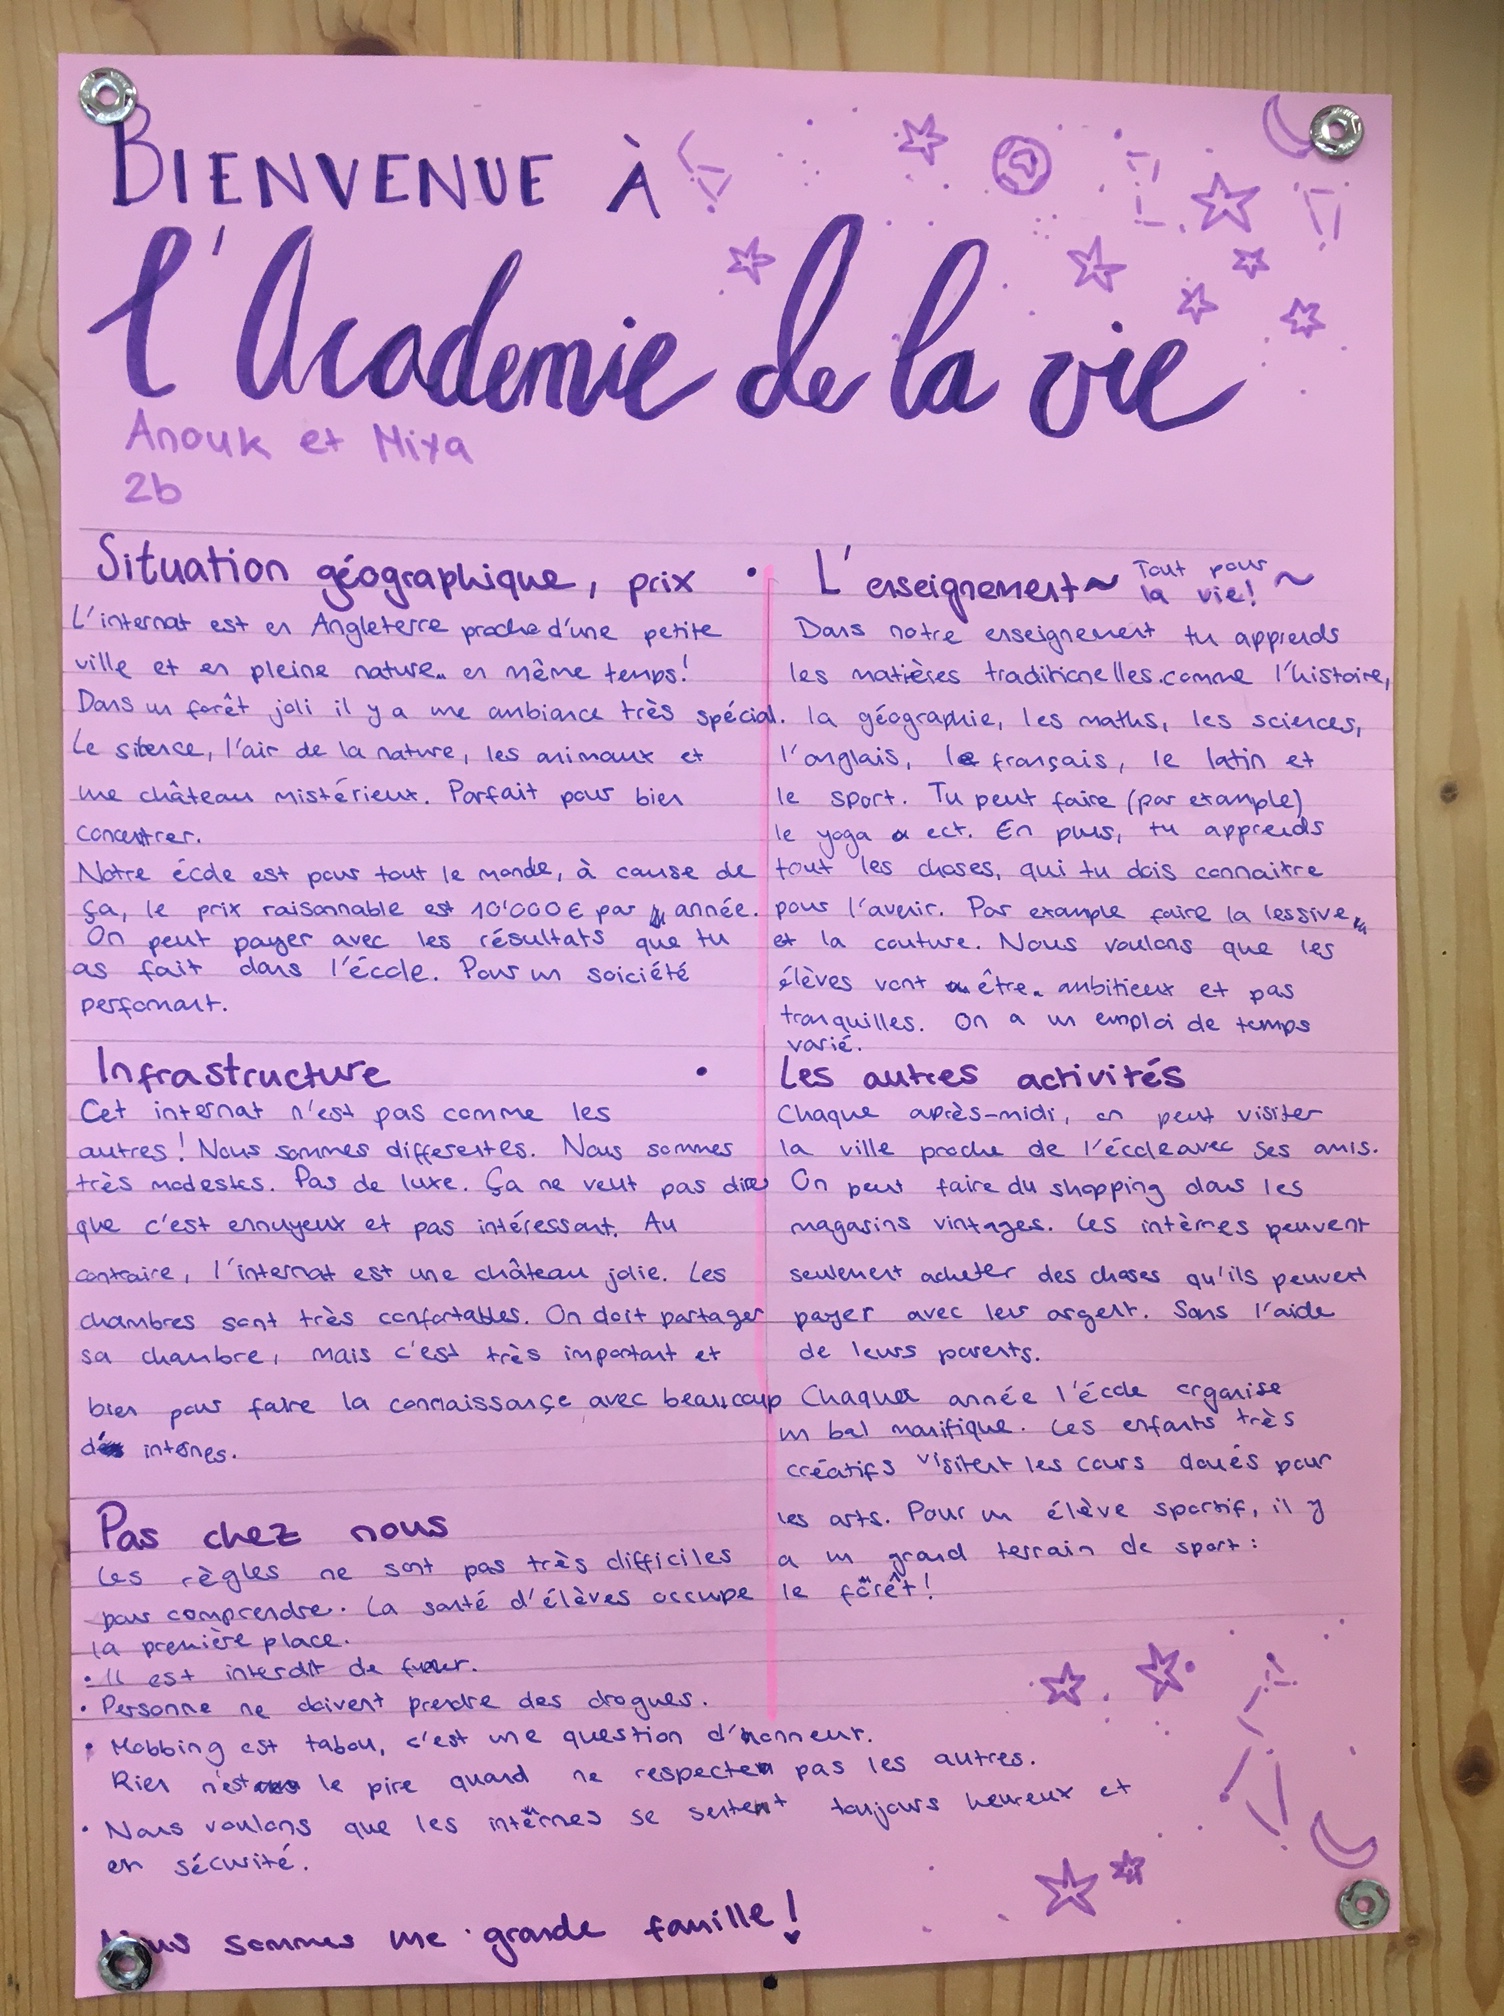 BIENVENUE À
l'Academie de la vie
Anouk et Miya
2b
Situation géographique, prix
L'internat est en Angleterre proche d'une petite
ville et en pleine nature en même temps!
Dans un forêt joli il y a une ambiance très spécial.
Le silence, l'air de la nature, les animaux et
une château mistérieux. Parfait pour bien
concentrer.
Notre école est pour tout le monde, à cause de
ça, le prix raisonnable est 10'000€ par année.
On peut payer avec les résultats que tu
as fait dans l'école. Pour un soiciété
perfomant.
Infrastructure
Cet internat n'est pas comme les
autres! Nous sommes differentes. Nous sommes
très modestes. Pas de luxe. Ça ne veut pas dire
que c'est ennuyeux et pas intéressant. Au
contraire, l'internat est une château jolie. Les
chambres sont très confortables. On doit partager
sa chambre, mais c'est très important et
bien pour faire la connaissançe avec beaucoup
des internes.
Pas chez nous
Les règles ne sont pas très difficiles
pour comprendre. La santé d'élèves occupe
la première place.
• Il est interdit de fumer.
• Personne ne doivent prendre des drogues.
• Mobbing est tabou, c'est une question d'honneur.
Rien n'est le pire quand ne respecten pas les autres.
• Nous voulons que les internes se sentent toujours heureux et
en sécurité.
Nous sommes une grande famille!
L'enseignement ~ Tout pour
la vie! ~
Dans notre enseignement tu apprends
les matières traditionelles comme l'histoire,
la géographie, les maths, les sciences,
l'anglais, le français, le latin et
le sport. Tu peut faire (par example)
le yoga ect. En plus, tu apprends
tout les choses, qui tu dois connaitre
pour l'avenir. Par example faire la lessive
et la couture. Nous voulons que les
élèves vont être ambitieux et pas
tranquilles. On a un emploi de temps
varié.
Les autres activités
Chaque après-midi, on peut visiter
la ville proche de l'école avec ses amis.
On peut faire du shopping dans les
magasins vintages. Les internes peuvent
seulement acheter des choses qu'ils peuvent
payer avec leur argent. Sans l'aide
de leurs parents.
Chaque année l'école organise
un bal manifique. Les enfants très
créatifs visitent les cours doués pour
les arts. Pour un élève sportif, il y
a un grand terrain de sport:
le forêt!